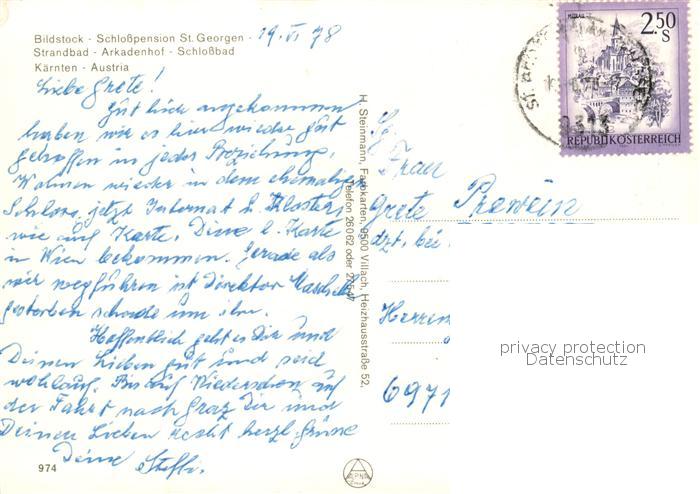 Bildstock - Schloßpension St. Georgen -
Strandbad - Arkadenhof - Schloßbad
Kärnten - Austria
19. VI. 78
Liebe Grete!
Gut hier angekommen
haben wir es hier wieder gut
getroffen in jeder Beziehung.
Wohnen wieder in dem ehemalig.
Schloss, jetzt Internat u. Kloster,
wie auf Karte. Deine l. Karte
in Wien bekommen. Gerade als
wir wegführen ist Direktor
gestorben schade um ihn.
Hoffentlich geht es Dir und
Deinen Lieben gut und seid
wohlauf. Bis auf Wiedersehen auf
der Fahrt nach Graz Dir und
Deinen Lieben recht herzl. Grüsse
Deine Steffi.
974
H. Steinmann, Farbkarten, 9500 Villach, Heizhausstraße 52,
Telefon 26062 oder
Frau
Grete Prewein
dzt. bei
Herren
6971
2.50
S
REPUBLIK ÖSTERREICH
privacy protection
Datenschutz